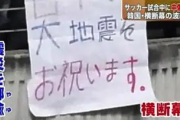 サッカー試合中に
韓国・横断幕の波
大地震を
お祝います。
横断幕